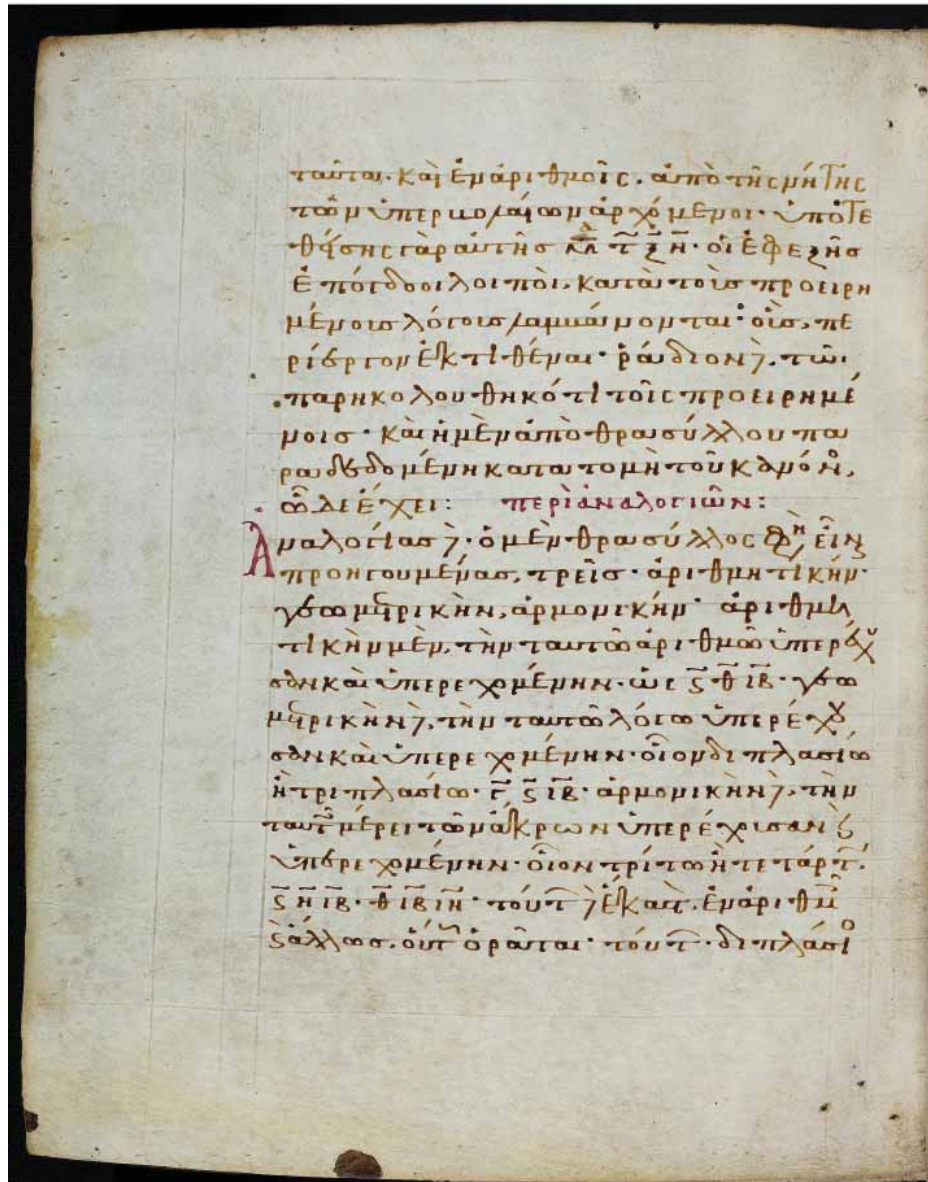 ταῦτα· καὶ ἐν ἀριθμοῖς. ἀπὸ τῆς νήτης
τῶν ὑπερβολαίων ἀρχόμενοι· ὑποτε
θείσης γὰρ αὐτῆς τ̅ξ̅η̅· οἱ ἐφεξῆς
ἐπόγδοοι λοιποὶ, κατὰ τοὺς προειρη
μένους λόγους λαμβάνονται· οἷς, πε
ρίεργον ἐκτιθέναι· ῥάδιον δὲ, τῶ
παρηκολουθηκότι τοῖς προειρημέ
νοις· καὶ ἡ μὲν ἀπὸ θρασύλλου πα
ραδεδομένη κατατομὴ τοῦ κανόν,
ὧδε ἔχει: περὶ ἀναλογιῶν:
Ἀναλογίας δὲ ὁ μὲν θρασύλλος φη εἶν
προηγουμένας, τρεῖς· ἀριθμητικήν·
γεωμετρικὴν, ἁρμονικήν· ἀριθμη
τικὴν μὲν, τὴν ταυτῶ ἀριθμῶ ὑπερέχου
σαν καὶ ὑπερεχομένην· ὡς ς̅ θ̅ ι̅β̅· γεω
μετρικὴν δὲ, τὴν ταυτῶ λόγω ὑπερέχου
σαν καὶ ὑπερεχομένην· οἷον διπλασίω
ἢ τριπλασίω· γ̅ ς̅ ι̅β̅· ἁρμονικὴν δὲ, τὴν
ταυτῶ μέρει τῶν ἄκρων ὑπερέχουσαν καὶ
ὑπερεχομένην· οἷον τρίτω ἢ τετάρτ.
ς̅ η̅ ι̅β̅· θ̅ ι̅β̅ ι̅η̅· τούτ δὲ ἕκαστ. ἐν ἀριθμ
καὶ ἄλλως. οὕτ ὁρᾶται· τούτ· διπλάσιο